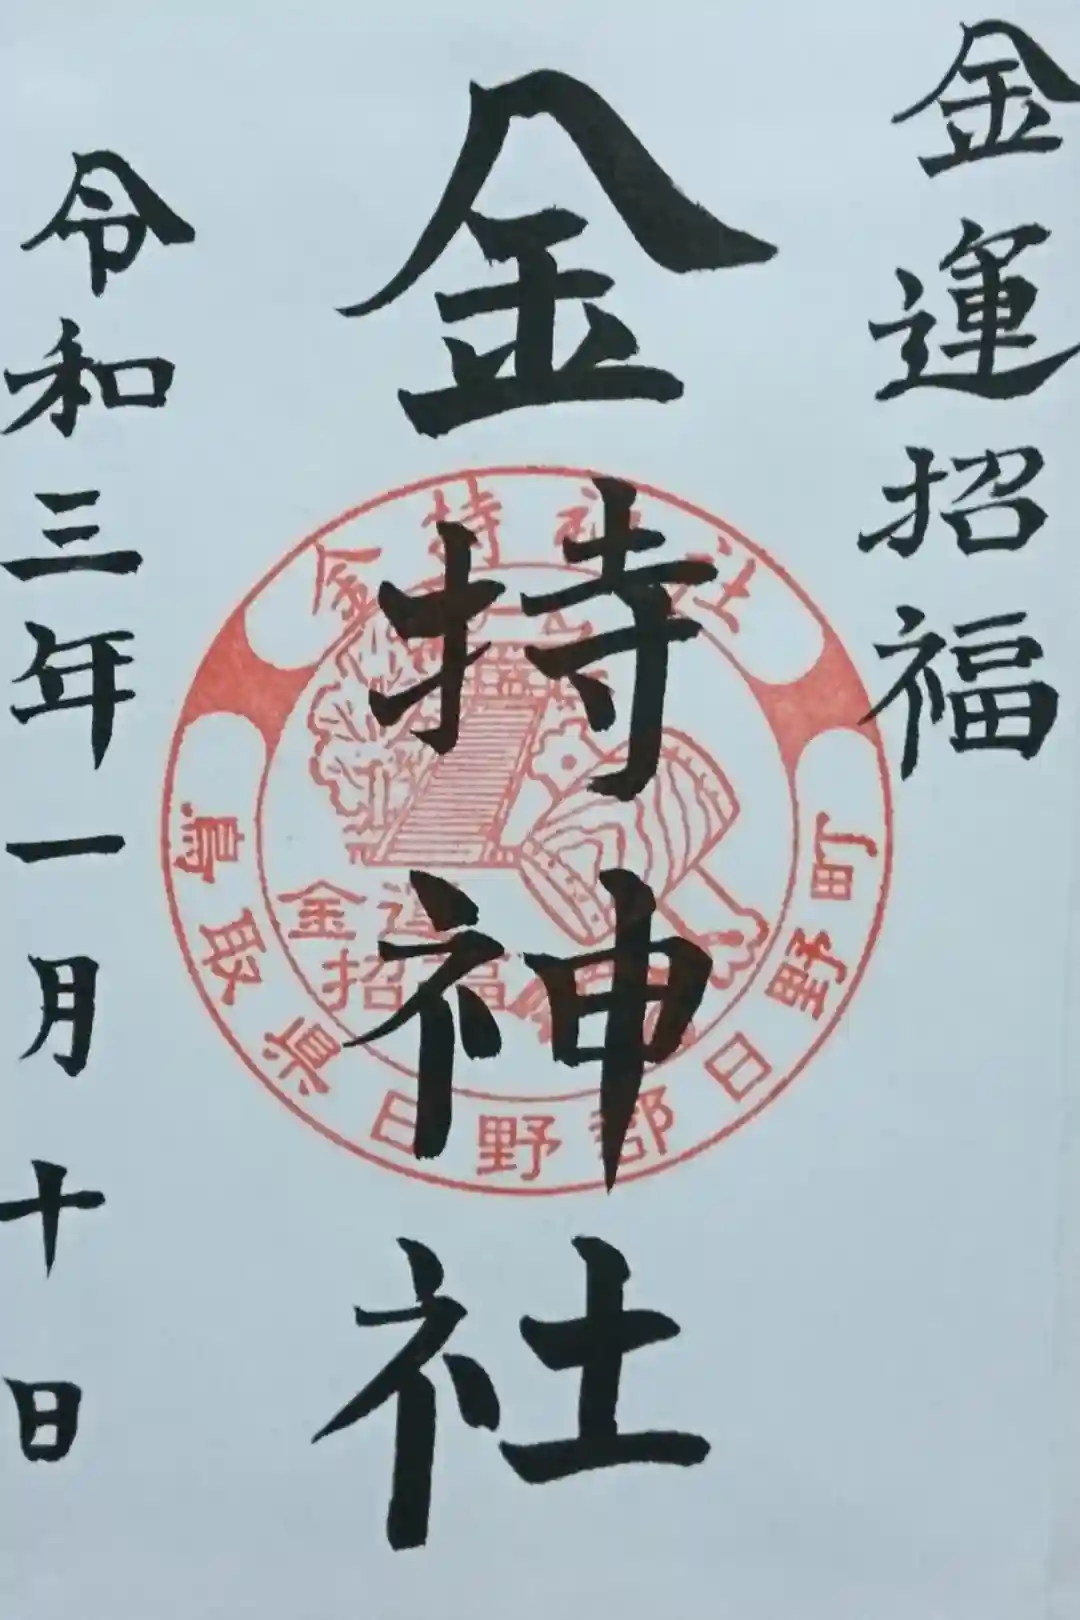 金運招福
金持神社
令和三年一月十日
金持神社
鳥取県日野郡日野町
金運
招福